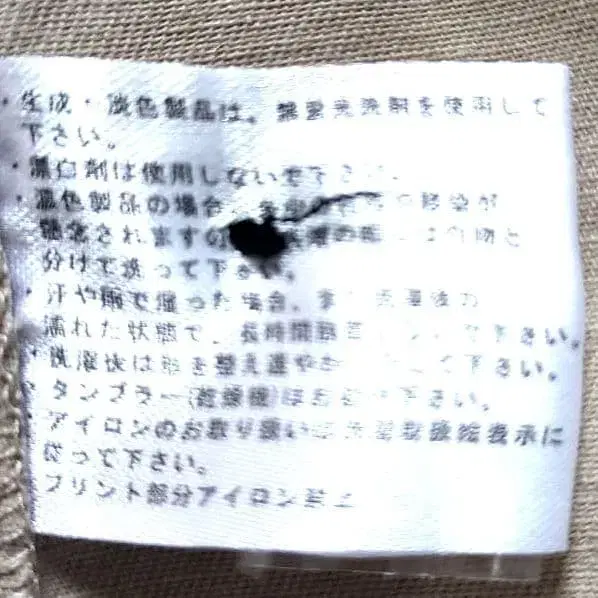 ・生成・淡色製品は、無蛍光洗剤を使用して
下さい。
・漂白剤は使用しないで下さい。
・濃色製品の場合、移染が
懸念されますの の際には他の物と
分けて洗って下さい。
・汗や雨で湿った場合、また洗濯後の
濡れた状態で、長時間放置しないで下さい。
・洗濯後は形を整え速やかに干して下さい。
・タンブラー(乾燥機)はお避け下さい。
・アイロンのお取り扱いは洗濯取扱絵表示に
従って下さい。
プリント部分アイロン禁止